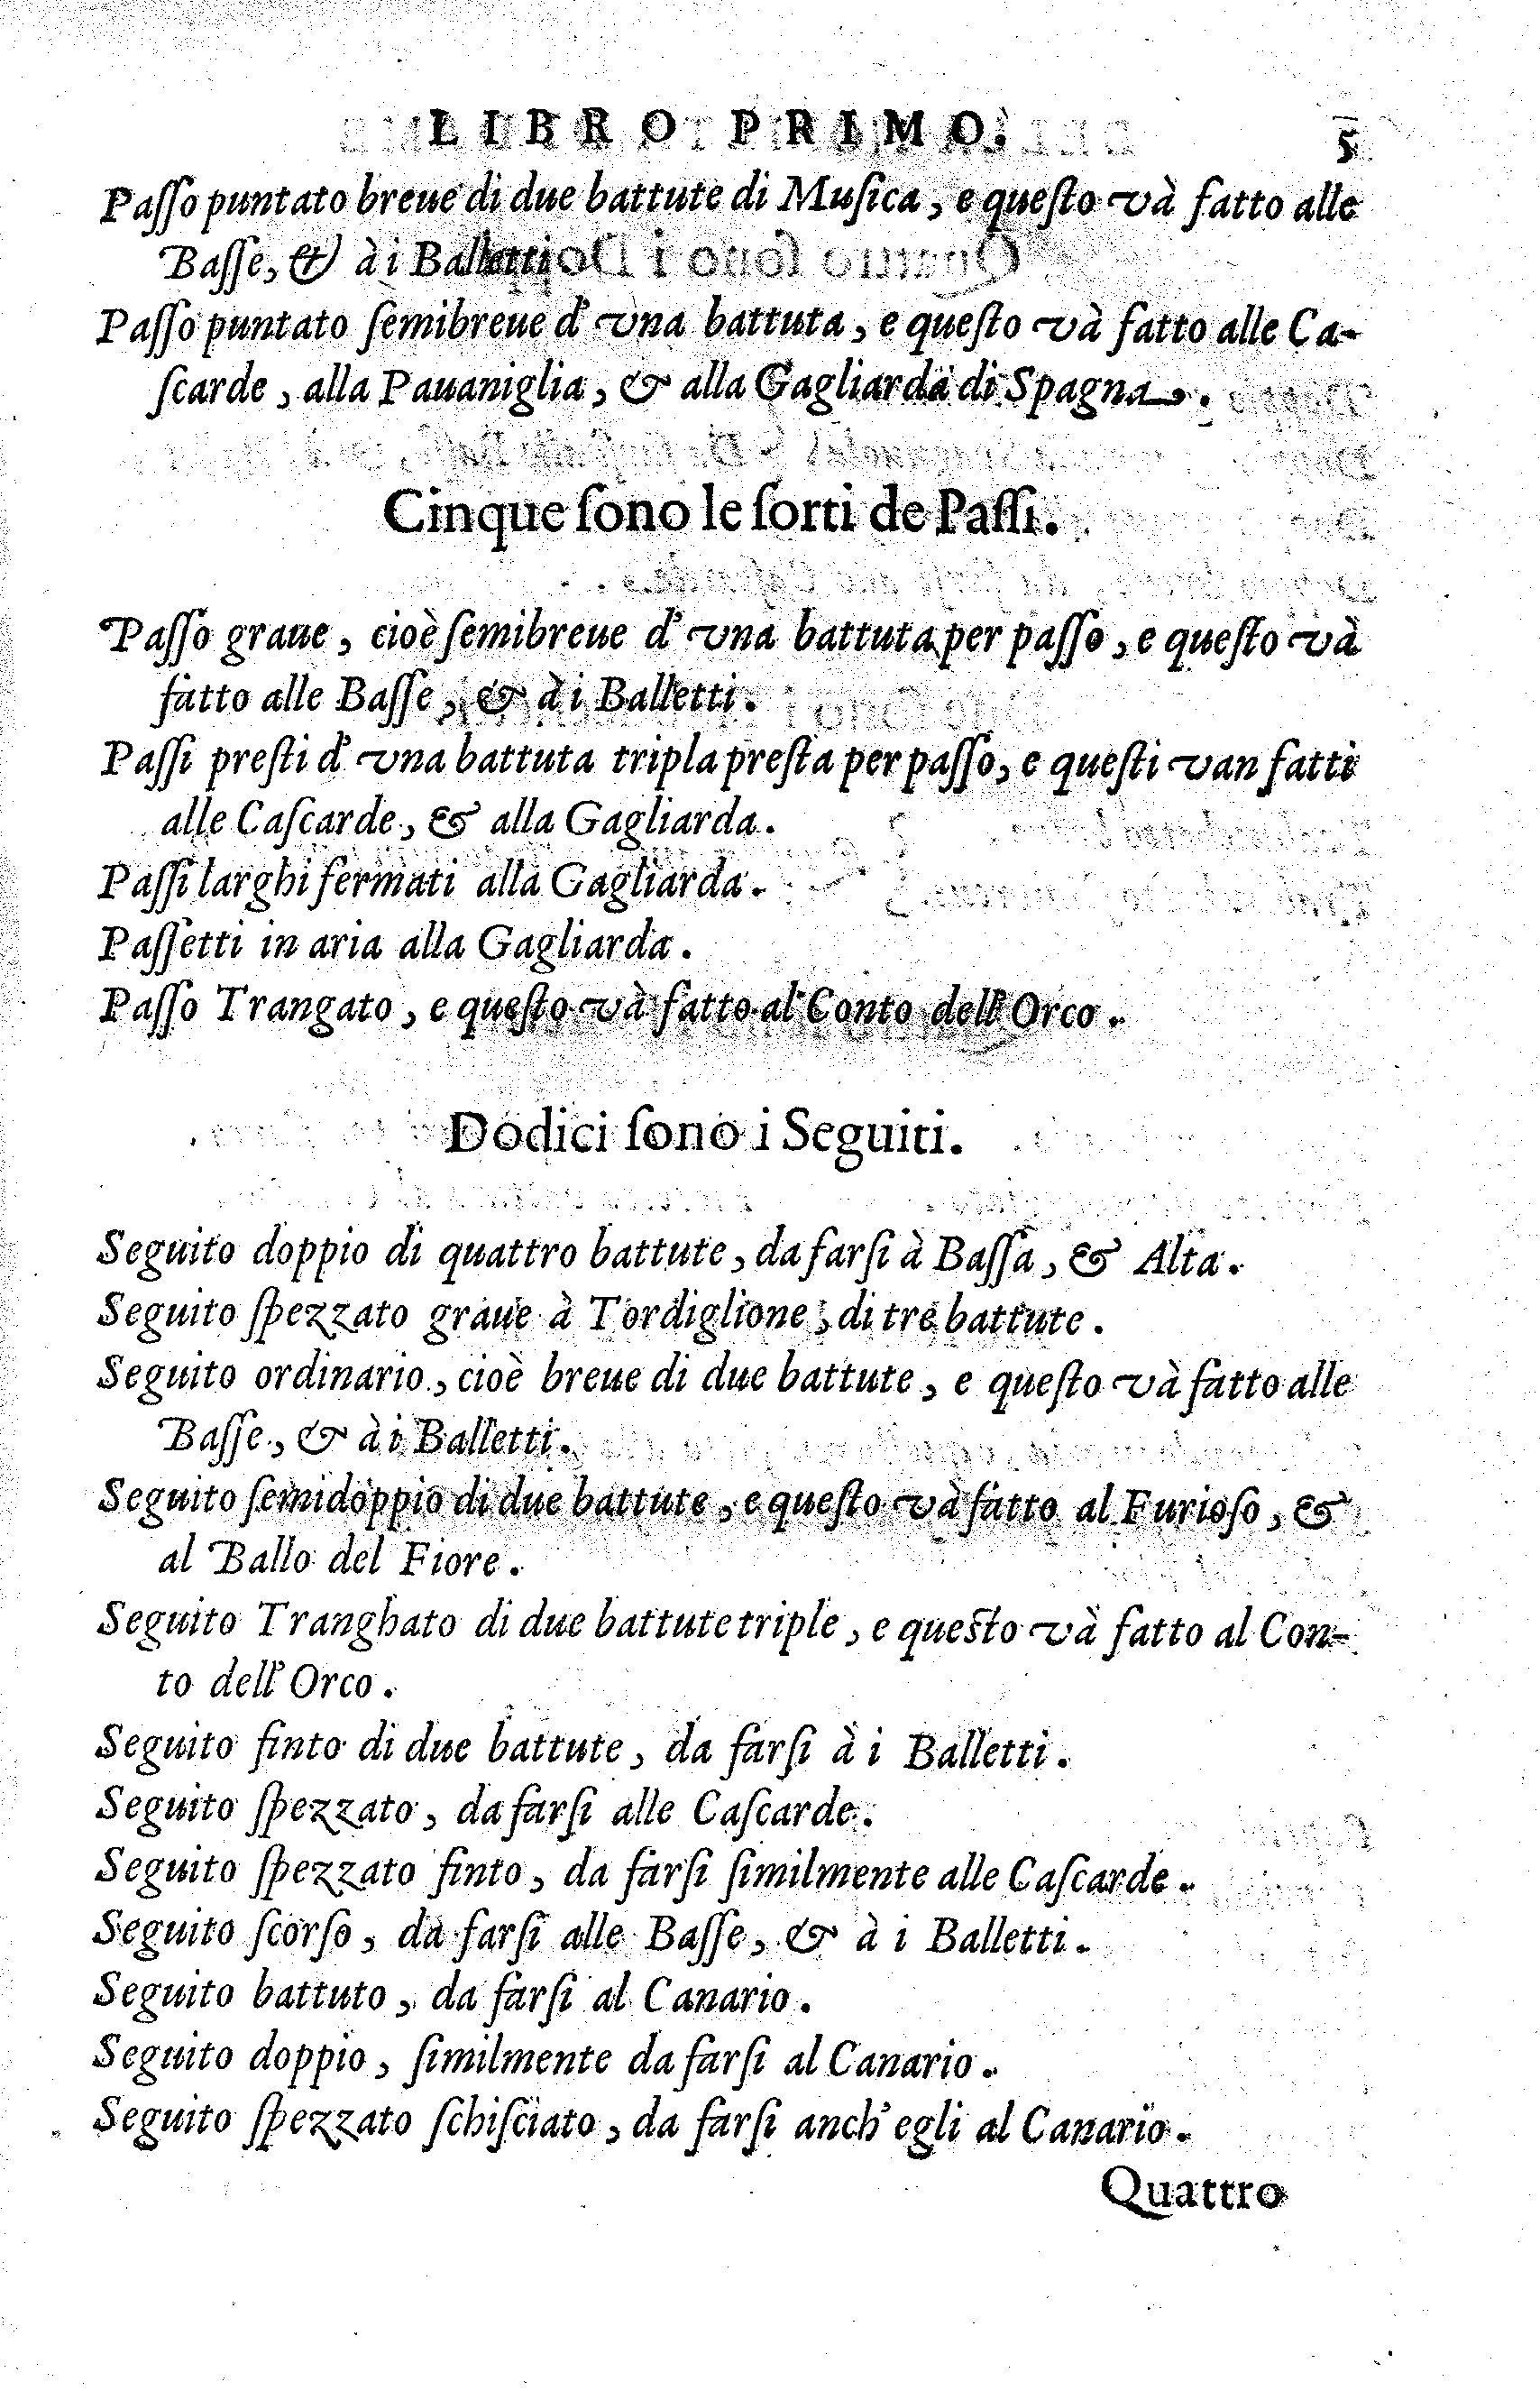 LIBRO PRIMO. 5
Paſſo puntato breue di due battute di Muſica, e queſto và fatto alle
Baſſe, & à i Balletti.
Paſſo puntato ſemibreue d'vna battuta, e queſto và fatto alle Ca-
ſcarde, alla Pauaniglia, & alla Gagliarda di Spagna.
Cinque ſono le ſorti de Paſſi.
Paſſo graue, cioè ſemibreue d'vna battuta per paſſo, e queſto và
fatto alle Baſſe, & à i Balletti.
Paſſi preſti d'vna battuta tripla preſta per paſſo, e queſti van fatti
alle Caſcarde, & alla Gagliarda.
Paſſi larghi fermati alla Gagliarda.
Paſſetti in aria alla Gagliarda.
Paſſo Trangato, e queſto và fatto al Conto dell'Orco.
Dodici ſono i Seguiti.
Seguito doppio di quattro battute, da farſi à Baſſa, & Alta.
Seguito ſpezzato graue à Tordiglione, di tre battute.
Seguito ordinario, cioè breue di due battute, e queſto và fatto alle
Baſſe, & à i Balletti.
Seguito ſemidoppio di due battute, e queſto và fatto al Furioſo, &
al Ballo del Fiore.
Seguito Tranghato di due battute triple, e queſto và fatto al Con-
to dell'Orco.
Seguito finto di due battute, da farſi à i Balletti.
Seguito ſpezzato, da farſi alle Caſcarde.
Seguito ſpezzato finto, da farſi ſimilmente alle Caſcarde.
Seguito ſcorſo, da farſi alle Baſſe, & à i Balletti.
Seguito battuto, da farſi al Canario.
Seguito doppio, ſimilmente da farſi al Canario.
Seguito ſpezzato ſchiſciato, da farſi anch'egli al Canario.
Quattro